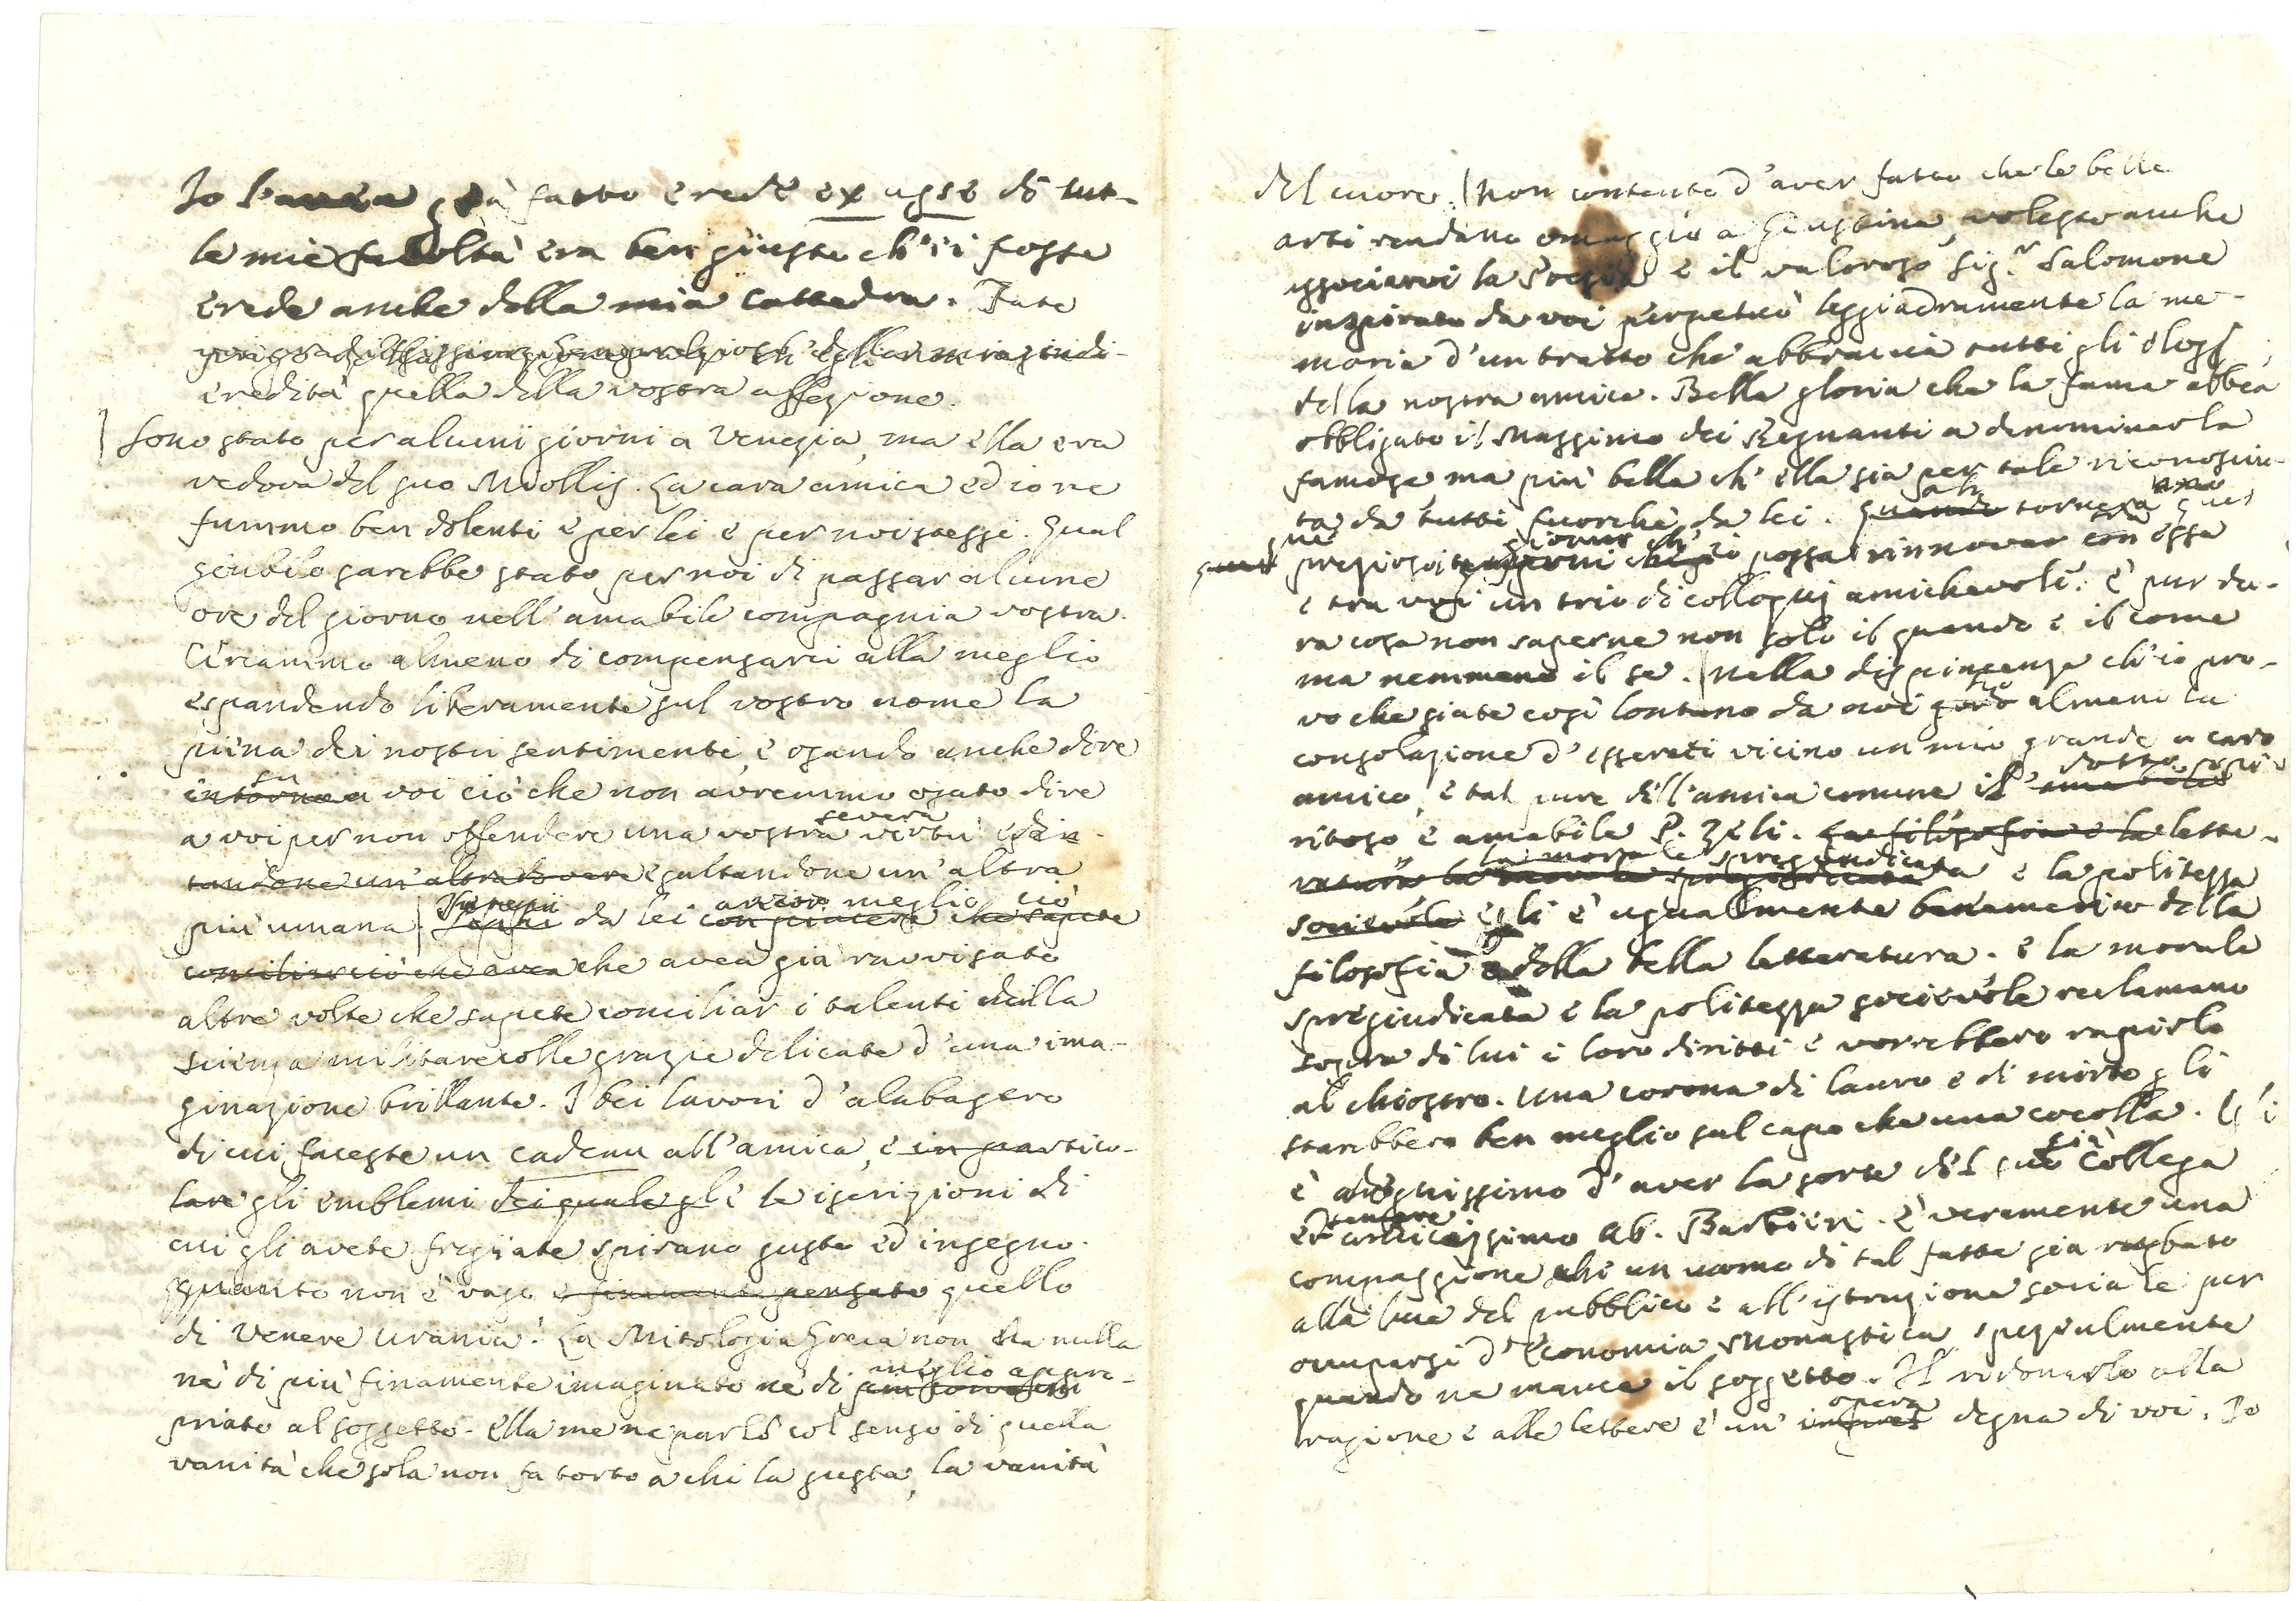 Io l'avea già fatto erede ex asse di tut-
te mie facoltà era ben giusto ch'ei fosse
erede anche della mia cattedra. Fate
eredità quella della vostra affezione.
Sono stato per alcuni giorni a Venezia, ma ella era
vedova del suo Miollis. La cara amica ed io ne
fummo ben dolenti e per lei e per noi stessi. Qual
giubilo sarebbe stato per noi di passar alcune
ore del giorno nell'amabile compagnia vostra.
Cercammo almeno di compensarci alla meglio
espandendo liberamente sul vostro nome la
piena dei nostri sentimenti, e osando anche dire
su
intorno a voi ciò che non avremmo osato dire
severa
a voi per non offendere una vostra virtù
tandone un'altra esaltandone un'altra
ancor meglio ciò
più umana. Intesi da lei con piacere che sapete
conciliar ciò che avea che avea già ravvisato
altre volte che sapete conciliar i talenti della
scienza militare colle grazie delicate d'una ima-
ginazione brillante. I bei lavori d'alabastro
di cui faceste un cadeau all'amica, e in partico-
lare gli emblemi dei quali e le iscrizioni di
cui gli avete fregiate spirano gusto ed ingegno.
Quanto non è vago e finamente pensato quello
di Venere Urania! La Mitologia Greca non ha nulla
meglio appro-
nè di più finamente imaginato nè di più
priato al soggetto. Ella me ne parlò col senso di quella
vanità che sola non fa torto a chi la gusta, la vanità
del cuore. Non contento d'aver fatto che le belle
arti rendano omaggio a Giustina, voleste anche
associarvi la Poesia e il valoroso Sig.r Salomone
inspirato da voi perpetuò leggiadramente la me-
moria d'un tratto che abbraccia tutti gli elogj
della nostra amica. Bella gloria che la fama abbia
obbligato il Massimo dei Regnanti a denominarla
famosa ma più bella ch'ella sia per tale riconosciu-
ah
ta da tutti fuorchè da lei. Quando tornerà quel
giorno ch'
prezioso ch'io possa rinnovar con essa
e tra voi un trio di colloquj amichevoli? è pur du-
ra cosa non saperne non solo il quando e il come
ma nemmeno il se. Nella dispiacenza ch'io pro-
ho
vo che siate così lontano da noi godo almeno la
consolazione d'esservi vicino un mio grande e caro
dotto, spi-
amico, e tal pure dell'amica comune il amabile
ritoso e amabile P. Zeli. La filosofia e la lette-
la morale spregiudicata
ratura la morale spregiudicata e la politezza
socievole Egli è ugualmente benemerito della
filosofia e della bella letteratura. e la morale
spregiudicata e la politezza socievole reclamano
sopra di lui i loro diritti e vorrebbero rapirlo
al chiostro. Una corona di lauro e di mirto gli
starebbero ben meglio sul capo che una cocolla. Egli
già
è degnissimo d'aver la sorte del suo Collega
ed amicissimo Ab. Barbieri. è veramente una
compassione che un uomo di tal fatta sia rubato
alla luce del pubblico e all'istruzione sociale per
occuparsi d'Economia Monastica, spezialmente
quando ne manca il soggetto. Il ridonarlo alla
opera
ragione e alle lettere è un' degna di voi. Io